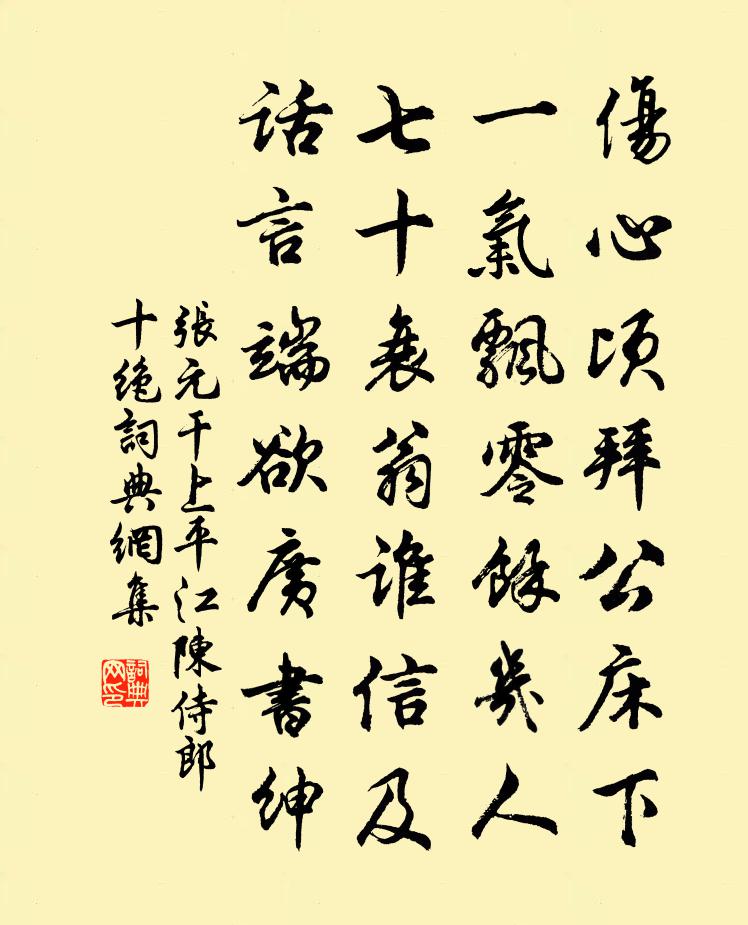 傷心頃拜公床下
一氣飄零餘幾人
七十衰翁誰信及
话言端欲廣書紳
張元干上平江陳侍郎
十绝詞典網集
詞典
网印